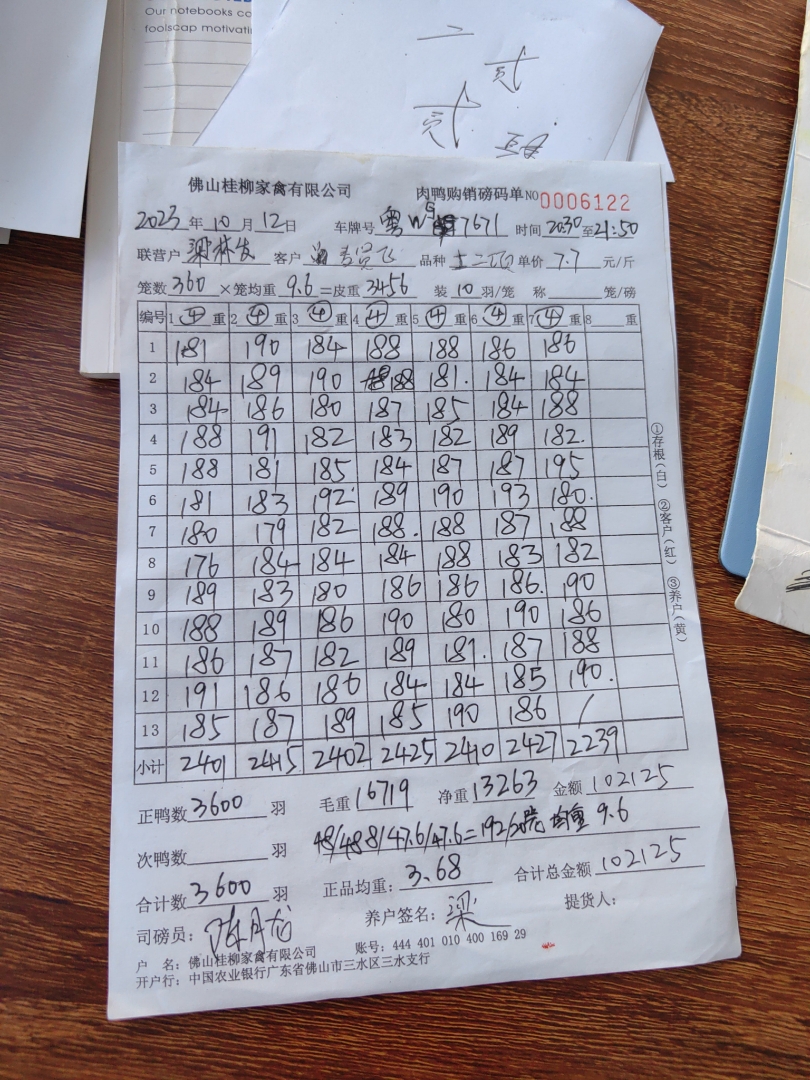 Our notebooks co
foolscap motivati
二
贰
贰
佛山桂柳家禽有限公司 肉鸭购销磅码单 NO 0006122
2023年10月12日 车牌号 粤W G 7671 时间 20:30至21:50
联营户 梁林发 客户 品种 单价 7.7 元/斤
笼数 360 ×笼均重 9.6 =皮重 3456 装 10 羽/笼 称 笼/磅
编号 1 ④ 重 2 ④ 重 3 ④ 重 4 ④ 重 5 ④ 重 6 ④ 重 7 ④ 重 8 重
1 181 190 184 188 188 186 186
2 184 189 190 188 181. 184 184
3 184 186 180 187 185 184 188
4 188 191 182 183 182 189 182.
5 188 181 185 184 187 187 195
6 181 183 192 189 190 193 180.
7 180 179 182 188. 188 187 188
8 176 184 184 184 188 183 182
9 189 183 180 186 186 186. 190
10 188 189 186 190 180 190 186
11 186 187 182 189 181. 187 188
12 191 186 186 184 184 185 190.
13 185 187 189 185 190 186 /
小计 2401 2415 2402 2425 2410 2427 2239
①存根(白) ②客户(红) ③养户(黄)
正鸭数 3600 羽 毛重 16719 净重 13263 金额 102125
次鸭数 羽 48/48.8/47.6/47.6=192/20笼 均重 9.6
合计数 3600 羽 正品均重: 3.68 合计总金额 102125
司磅员: 陈月龙 养户签名: 梁 提货人:
户 名: 佛山桂柳家禽有限公司 账号: 444 401 010 400 169 29
开户行: 中国农业银行广东省佛山市三水区三水支行